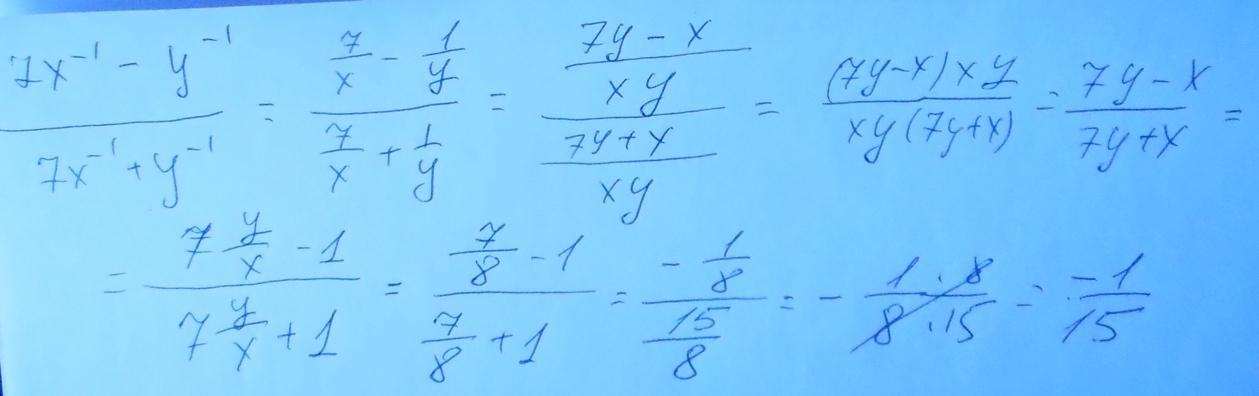 (7x⁻¹ - y⁻¹)/(7x⁻¹ + y⁻¹) = (7/x - 1/y)/(7/x + 1/y) = ((7y - x)/(xy))/((7y + x)/(xy)) = ((7y-x)xy)/(xy(7y+x)) = (7y - x)/(7y + x) =
= (7 y/x - 1)/(7 y/x + 1) = (7/8 - 1)/(7/8 + 1) = (-1/8)/(15/8) = - (1·8)/(8·15) = (-1)/15